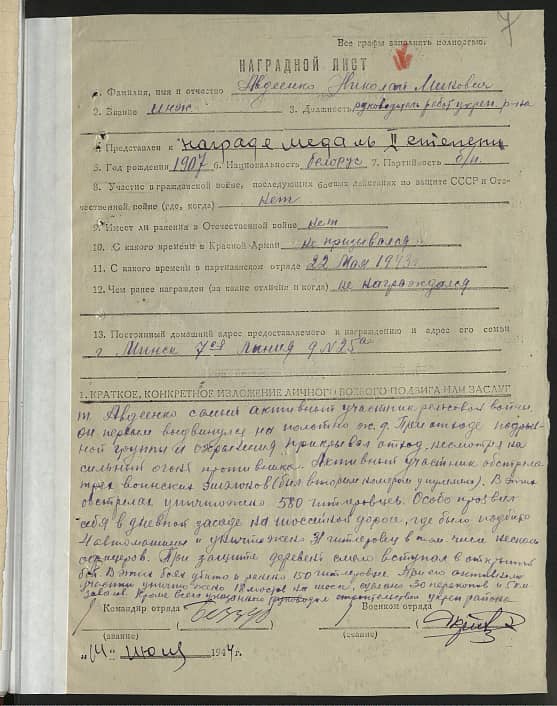 7
Все графы заполнять полностью.
НАГРАДНОЙ ЛИСТ
1. Фамилия, имя и отчество Авдеенко Николай
2. Звание инж 3. Должность руководитель работ укреп. р-на
4. Представлен к награде медаль II степени
5. Год рождения 1907 6. Национальность белорус 7. Партийность б/п.
8. Участие в гражданской войне, последующих боевых действиях по защите СССР и Оте-
чественной войне (где, когда) нет
9. Имеет ли ранения в Отечественной войне нет
10. С какого времени в Красной Армии не призывался
11. С какого времени в партизанском отряде 22 Мая 1943 г.
12. Чем ранее награжден (за какие отличия и когда) не награждался
13. Постоянный домашний адрес предоставляемого к награждению и адрес его семьи
г. Минск 7ая Линия д N 25а
1. КРАТКОЕ, КОНКРЕТНОЕ ИЗЛОЖЕНИЕ ЛИЧНОГО БОЕВОГО ПОДВИГА ИЛИ ЗАСЛУГ
т. Авдеенко самый активный участник рельсовой войны
он первым выдвинулся на полотно ж.д. При отходе подрыв-
ной группы и охранения прикрывал отход, несмотря на
сильный огонь противника. Активный участник обстрела
трех воинских эшалонов (был вторым номером у пулемета). В этих
обстрелах уничтожено 580 гитлеровцев. Особо проявил
себя в дневной засаде на шоссейной дороге, где было подбито
4 автомашины и уничтожен 31 гитлеровец в том числе несколько
офицеров. При защите деревень смело вступал в открытый
бой. В этих боях убито и ранено 150 гитлеровцев. При его активном
участии уничтожено 18 мостов на шоссе, сделано 30 перекопов и 5 км
завалов. Кроме всего указанного руководил строительством укреп района
Командир отряда Военком отряда
(звание) (звание)
„14“ июля 1944 г.